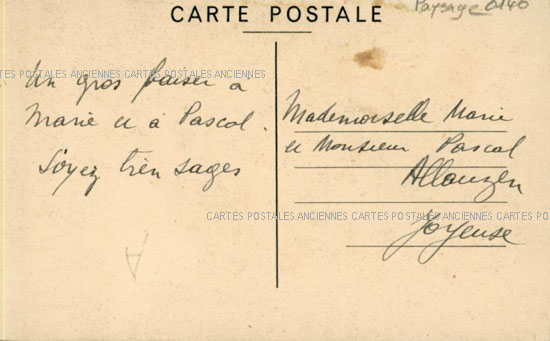 Paysage 0140
CARTE POSTALE
CARTES POSTALES ANCIENNES CARTES POSTALES ANCIENNES
Un gros baiser à
Marie et à Pascal.
Soyez bien sages
Mademoiselle Marie
et Monsieur Pascal
Joyeuse
CARTES POSTALES ANCIENNES CARTES POSTALES ANCIENNES CARTES POSTALES
A